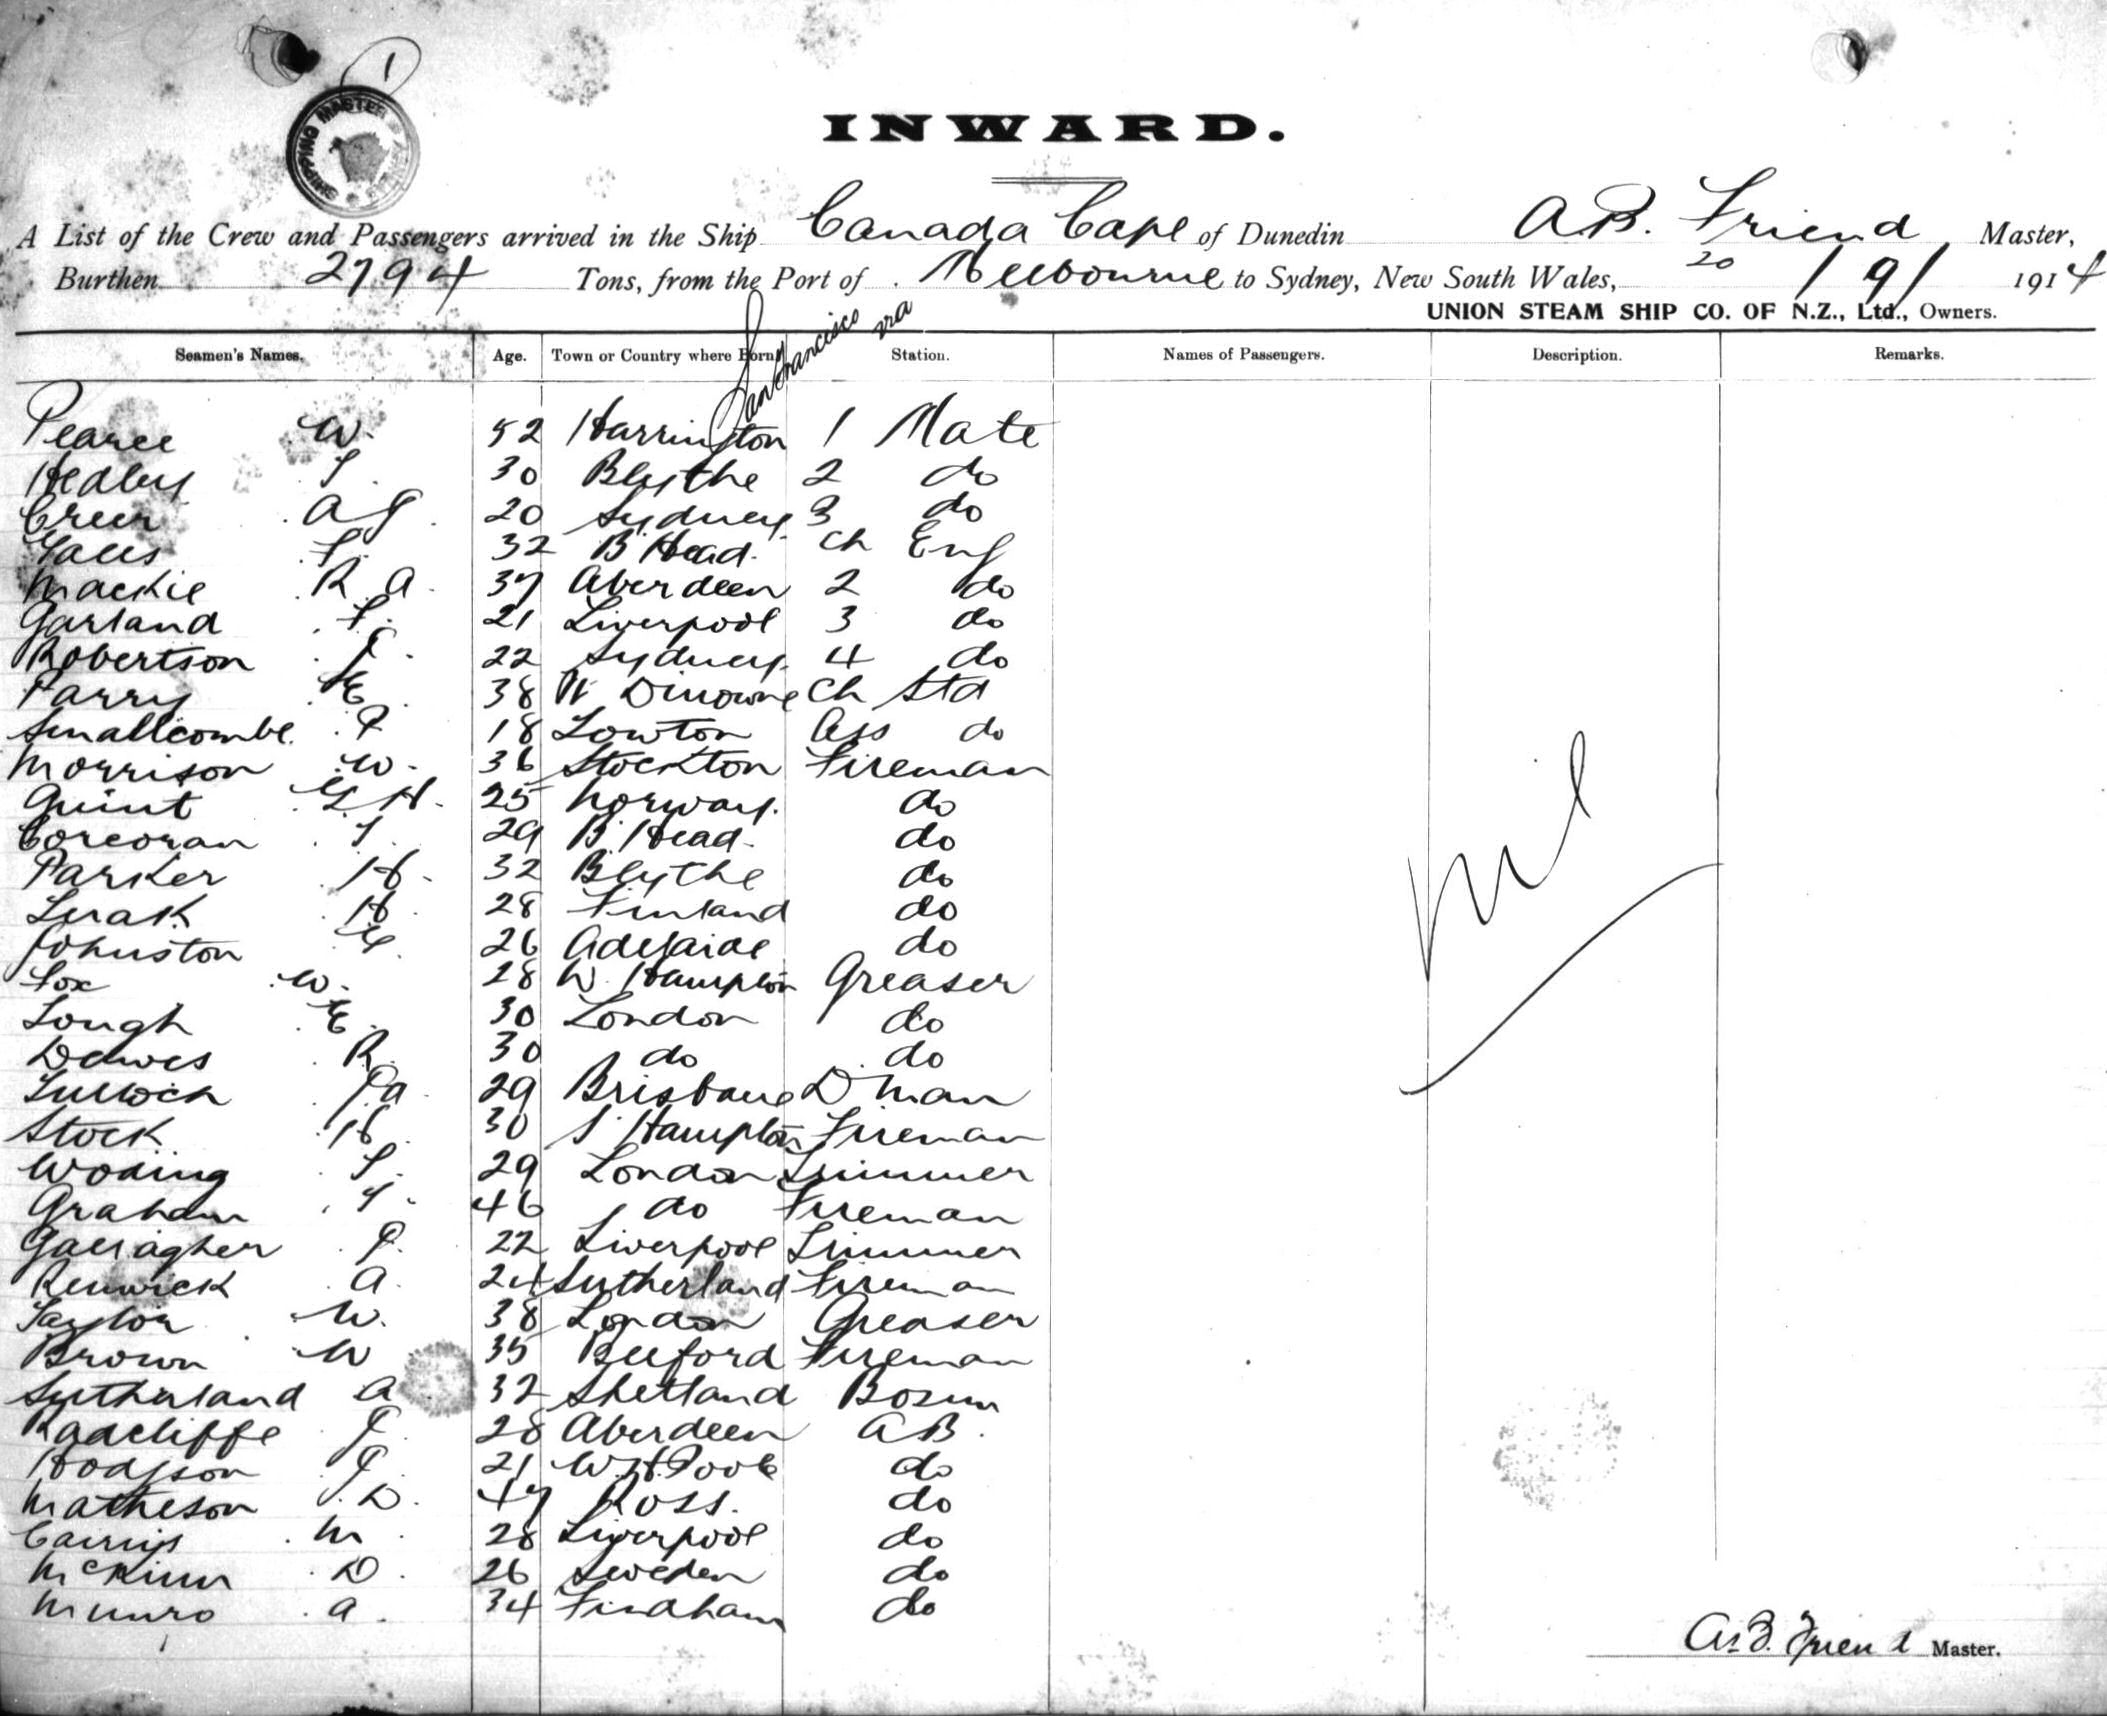 1
SHIPPING MASTER
INWARD.
A List of the Crew and Passengers arrived in the Ship Canada Cape of Dunedin A B. Friend Master,
Burthen 2794 Tons, from the Port of San Francisco via Melbourne to Sydney, New South Wales, 20 / 9 / 1914
UNION STEAM SHIP CO. OF N.Z., Ltd., Owners.
Seamen's Names. Age. Town or Country where Born Station. Names of Passengers. Description. Remarks.
Pearce W. 52 Harrington 1 Mate
Hedley 30 Blythe 2 do
Creer A G. 20 Sydney 3 do
F. 32 B'Head. Ch Eng
Mackie R. A. 37 Aberdeen 2 do
Garland F. 21 Liverpool 3 do
Robertson J. 22 Sydney. 4 do
Parry E. 38 Ch Std
Smallcombe. P 18 Lowton Ass do
Morrison W. 36 Stockton Fireman
Quint H. 25 Norway. do
Corcoran 29 B'Head. do
Parker H. 32 Blythe do
H. 28 Finland do
Johnston 26 Adelaide do
Fox W. 28 W. Hampton Greaser
Lough E. 30 London do
Dawes R. 30 do do
A. 29 Brisbane D Man
Stock H. 30 S'Hampton Fireman
Woding 29 London Trimmer
Graham 46 do Fireman
Gallagher P. 22 Liverpool Trimmer
Renwick A. 24 Sutherland Fireman
Taylor W. 38 London Greaser
Brown W 35 Fireman
Sutherland A 32 Shetland Bosun
Radcliffe J. 28 Aberdeen A B.
Hodgson J. 21 W. H. Pool do
Matheson J. D. 47 Ross. do
M. 28 Liverpool do
McKinn D. 26 Sweden do
Munro A. 34 Findham do
Nil
A. B. Friend Master.